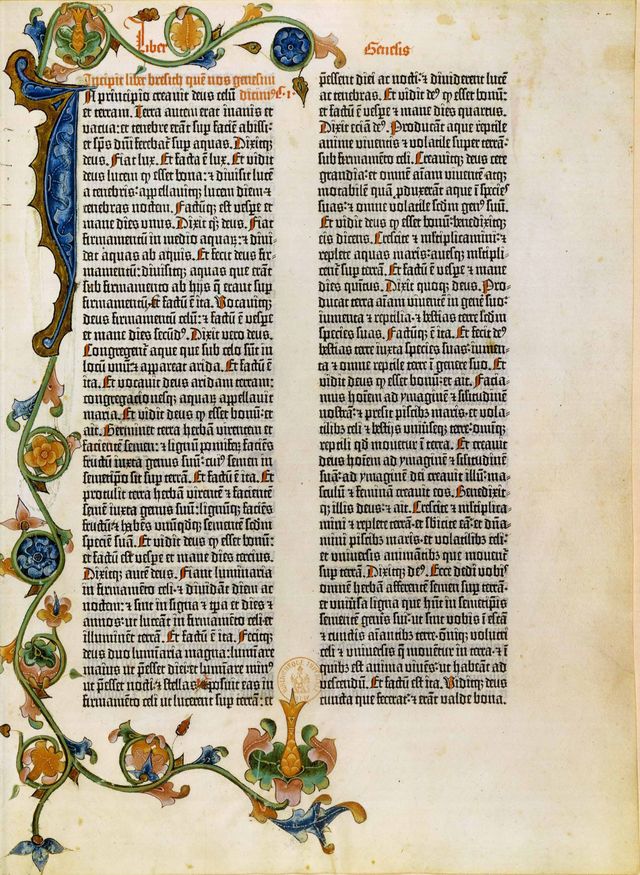 Liber
Genesis
Incipit liber bresich quē nos genesim
A principio creavit deus celū dicim⁹ c̄ı·
et terram. Terra autem erat inanis et
vacua: et tenebre erāt sup faciē abissi:
et sp̄s dn̄i ferebat̄ sup aquas. Dixitq̄
deus. Fiat lux. Et facta ē lux. Et vidit
deus lucem q̄ esset bona: et divisit lucē
a tenebris: appellavitq̄ lucem diem et
tenebras noctem. Factuq̄ est vespe et
mane dies unus. Dixit q̄ deus. Fiat
firmamentū in medio aquaꝝ: et divi-
dat aquas ab aquis. Et fecit deus fir-
mamentū: divisitq̄ aquas que erāt
sub firmamento ab hijs q̄ erant sup
firmamentū: et factū ē ita. Vocavitq̄
deus firmamentū celū: et factū ē vespe
et mane dies secūd⁹. Dixit vero deus.
Congregent̄ aque que sub celo sūt in
locum unū: et appareat arida. Et factū ē
ita. Et vocavit deus aridam terram:
congregacionesq̄ aquaꝝ appellavit
maria. Et vidit deus q̄ esset bonū: et
ait. Germinet terra herbā virentem et
facientē semen: et lignū pomifeꝝ faciēs
fructū iuxta genus suū: cui⁹ semen in
semetip̄o sit sup terrā. Et factū ē ita. Et
protulit terra herbā virentē et facientē
semē iuxta genus suū: lignūq̄ faciēs
fructū et habēs unūqdq̄ sementē scdm
speciē suā. Et vidit deus q̄ esset bonū:
et factū est vespe et mane dies tercius.
Dixitq̄ autē deus. Fiant luminaria
in firmamēto celi: et dividāt diem ac
noctem: et sint in signa et tp̄a et dies et
annos: ut luceāt in firmamēto celi et
illuminent terrā. Et factū ē ita. Fecitq̄
deus duo luminaria magna: lumīare
maius ut p̄esset diei: et lumīare min⁹
ut p̄esset nocti: et stellas: et posuit eas in
firmamēto celi ut lucerent sup terrā: et
p̄essent diei ac nocti: et dividerent lucē
ac tenebras. Et vidit de⁹ q̄ esset bonū:
et factū ē vespe et mane dies quartus.
Dixit eciā de⁹. Producant aque reptile
anime viventis et volatile super terrā:
sub firmamēto celi. Creavitq̄ deus cete
grandia: et omnē aīam viventē atq̄
motabilē quā p̄duxerāt aque ī species
suas: et omne volatile scdm gen⁹ suū.
Et vidit deus q̄ esset bonū: benedixitq̄
eis dicens. Crescite et multiplicamini: et
replete aquas maris: avesq̄ multipli-
cent̄ sup terrā. Et factū ē vespe et mane
dies quintus. Dixit quoq̄ deus. Pro-
ducat terra aīam viventē in genē suo:
iumenta et reptilia: et bestias terre scdm
species suas. Factūq̄ ē ita. Et fecit de⁹
bestias terre iuxta species suas: iumen-
ta et omne reptile terre ī genere suo. Et
vidit deus q̄ esset bonū: et ait. Facia-
mus hoīem ad ymaginē et silitudinē
nostrā: et presit piscib⁹ maris: et vola-
tilib⁹ celi et bestijs univseq̄ terre: omniq̄
reptili qd movetur ī terra. Et creavit
deus hoīem ad ymaginē et silitudinē
suā: ad ymaginē dei creavit illū: ma-
sculū et feminā creavit eos. Benedixit-
q̄ illis deus: et ait. Crescite et multiplica-
mini et replete terrā: et sbicite eā: et dn̄a-
mini piscib⁹ maris: et volatilib⁹ celi:
et universis animātib⁹ que movent̄
sup terrā. Dixitq̄ de⁹. Ecce dedi vobis
omnē herbā afferentē semen sup terrā:
et univsa ligna que hn̄t in semetip̄is
sementē genis sui: ut sint vobis ī escā
et cunctis aīantib⁹ terre: omniq̄ volucri
celi et univsis q̄ movent̄ in terra: et ī
quib⁹ est anima vivēs: ut habeāt ad
vescendū. Et factū est ita. Viditq̄ deus
cuncta que fecerat: et erāt valde bona.